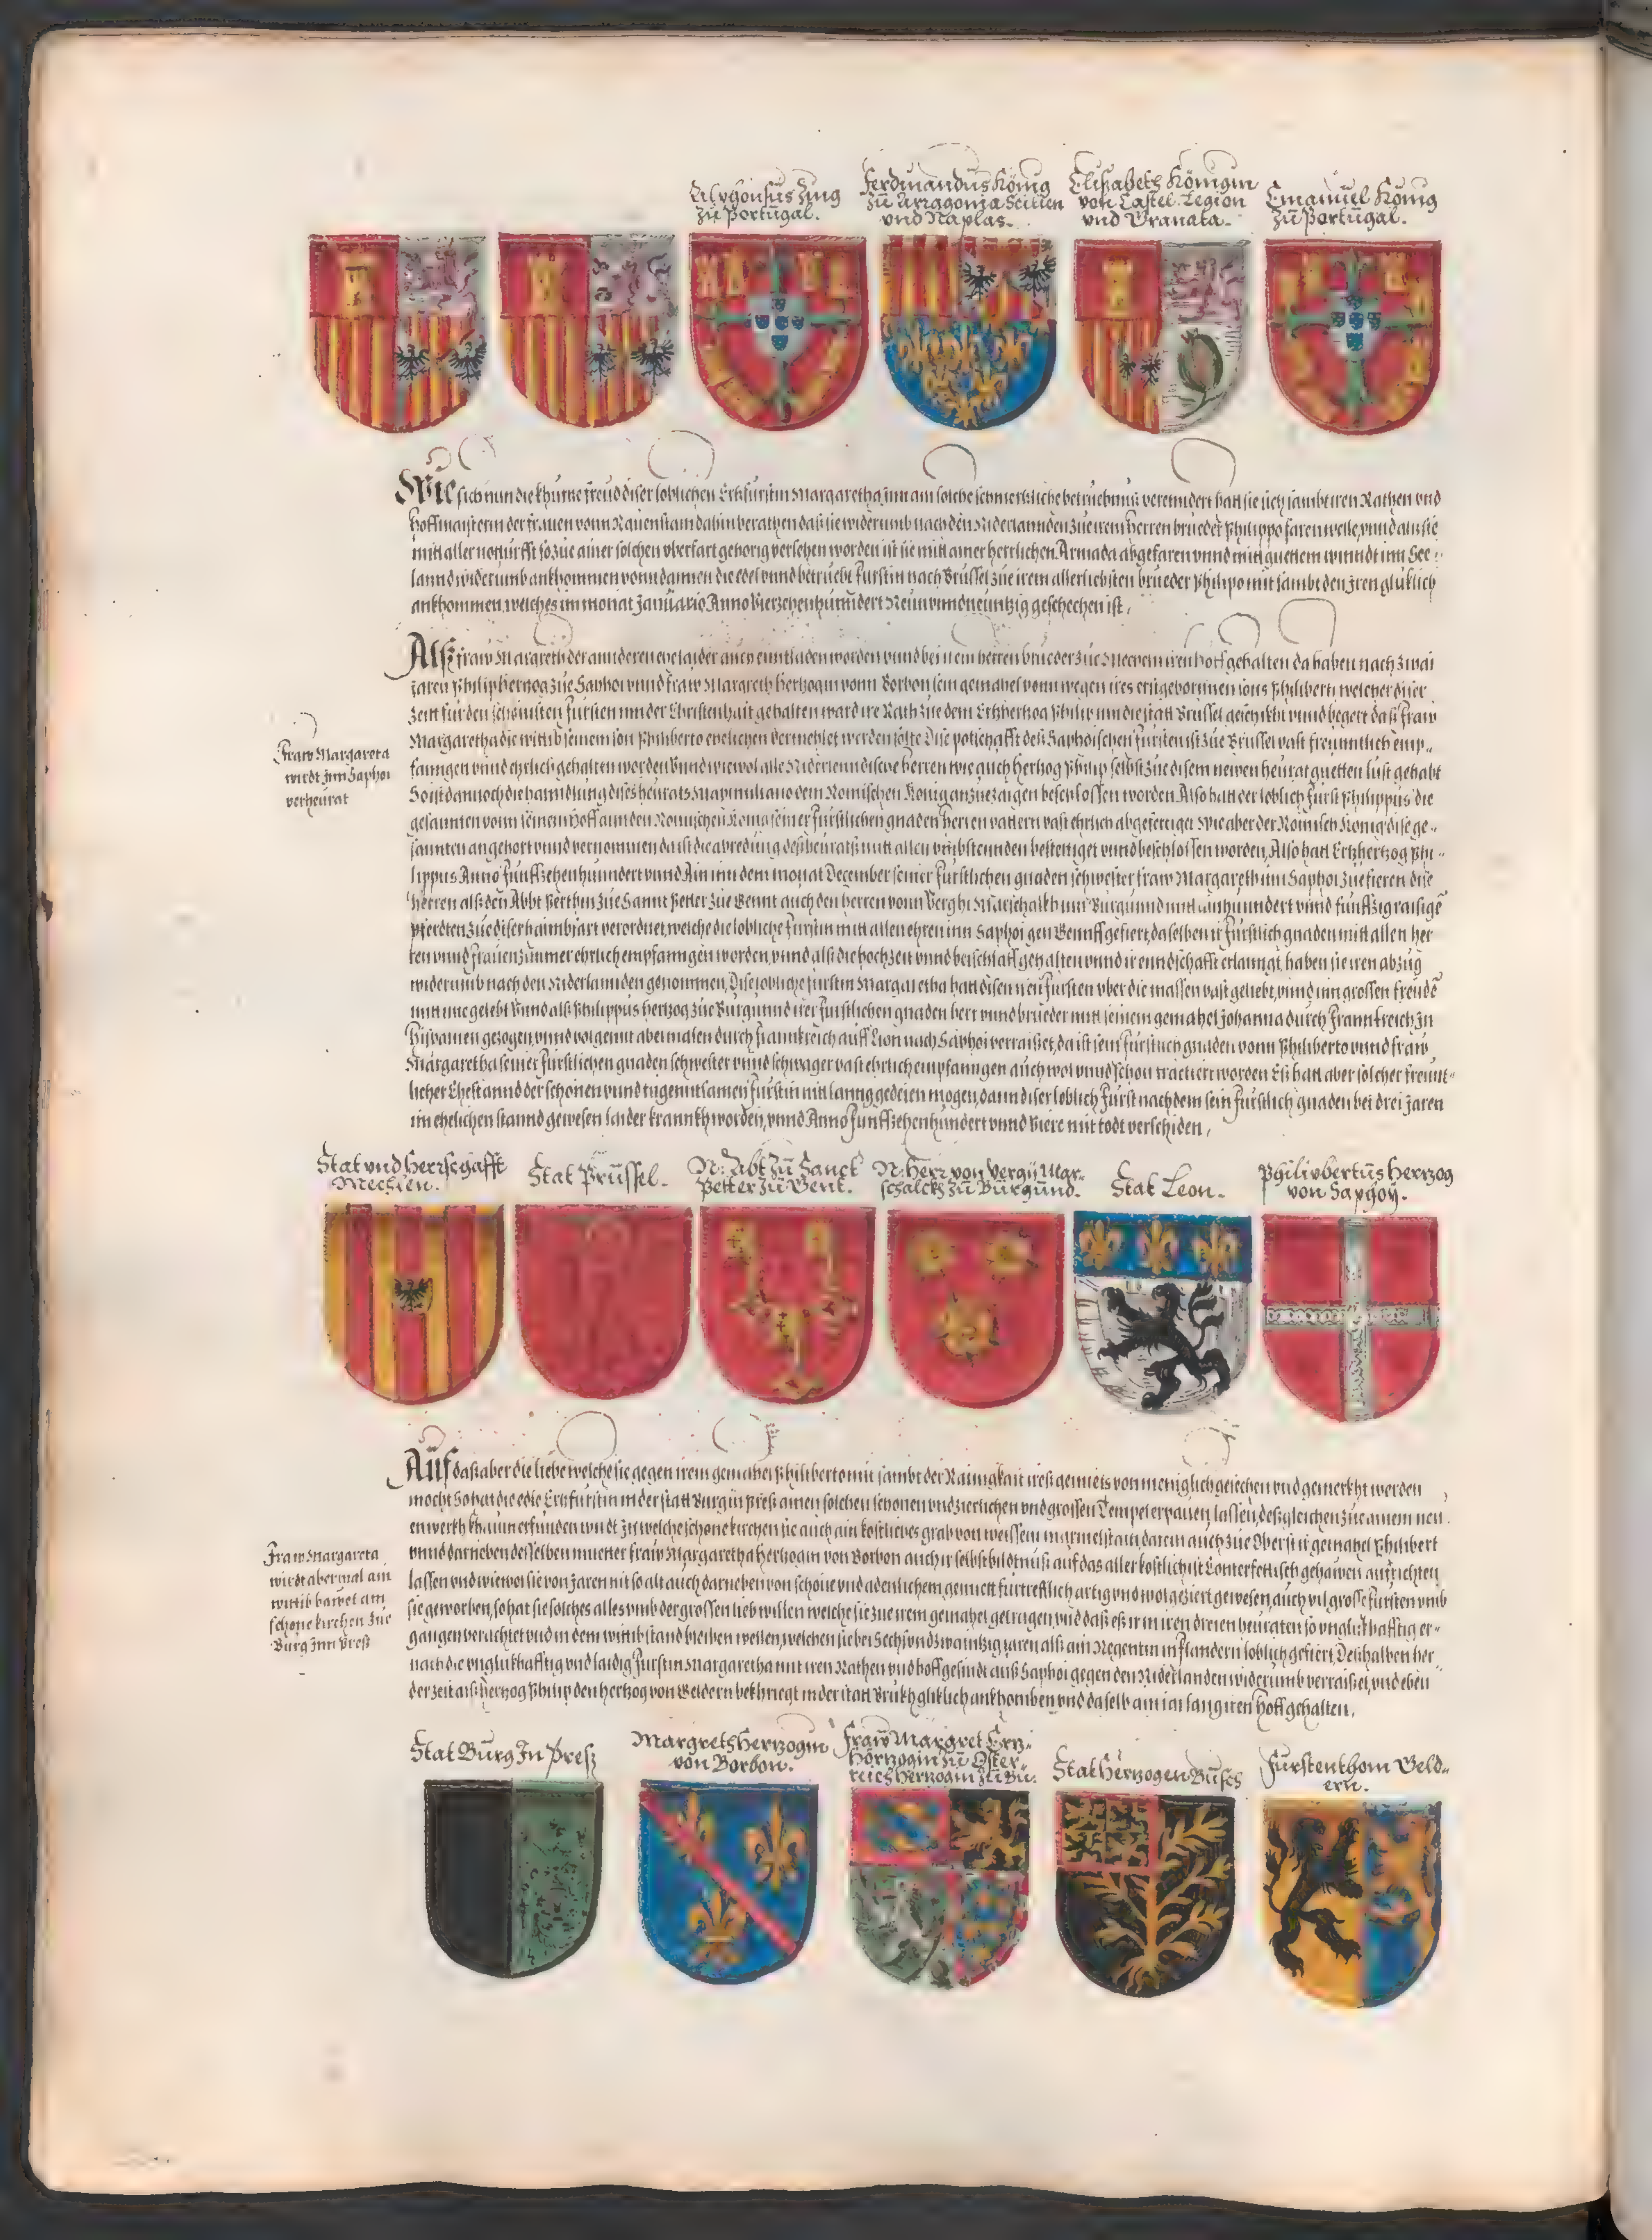 Alphonsus König
zū Portūgal.
Ferdinandūs König
zū Arragonia Scitien
vnd Naplas.
Elisabeth Königin
von Castel. Legion
vnd Granata.
Emanūel König
zū Portūgal.
sich nun die khurtze freud diser loblichen Ertzfurstin Margaretha inn ain solche schmertzliche betruebnus verenndert hatt sie sich sambt iren Räthen vnd
hoffmaisterin der frauen vonn Rauenstain dahin berathen das sie widerumb nach den Niderlannden zue irem herren brueder Philippo faren welle, vnnd als sie
mitt aller notturfft so zue ainer solchen vberfart gehorig versehen worden ist sie mitt ainer herrlichen Armada abgefaren vnnd mitt guettem winndt inn See-
lannd widerumb ankhommen vonn dannen die edel vnnd betruebt furstin nach Brussel zue irem allerliebsten brueder Philipo mit sambt den iren gluklich
ankhommen, welches im monat Januario Anno Vierzehenhunndert Neun vnnd neuntzig geschechen ist.
Alß fraw Margreth der annderen ehe laider auch entladen worden vnnd bei irem herren brueder zue Mecheln iren hoff gehalten da haben nach zwai
jaren Philip hertzog zue Saphoi vnnd fraw Margreth hertzogin vonn Borbon sein gemahel vonn wegen ires erstgebornnen sons Philiberti welcher diser
zeitt fur den schönisten fursten inn der Christenhait gehalten ward ire Räth zue dem Ertzhertzog Philip inn die statt Brussel geschikht vnnd begert das fraw
Margaretha die wittib seinem son Philiberto ehelichen vermehlet werden solte Dise potschafft deß Saphoischen fursten ist zue Brussel vast freunntlich emp-
fanngen vnnd ehrlich gehalten worden Vnnd wiewol alle Niderlenndische herren wie auch hertzog Philip selbst zue disem neuen heurat guetten lust gehabt
So ist dannoch die hanndlung dises heurats Maximiliano dem Römischen König anzuezaigen beschlossen worden. Also hatt der loblich furst Philippus die
gesannten vonn seinem hoff ann den Römischen König seiner furstlichen gnaden herren vattern vast ehrlich abgefertiget Wie aber der Römisch König dise ge-
sannten angehort vnnd vernommen da ist die abredung deß heurats mitt allen vmbstennden bestettiget vnnd beschlossen worden, Also hatt Ertzhertzog Phi-
lippus Anno Funffzehenhunndert vnnd Ain inn dem monat December seiner furstlichen gnaden schwester fraw Margareth inn Saphoi zue fieren dise
herren alß den Abbt Perthin zue Sannt Petter zue Gennt auch den herren vonn Verghi Marschalkh inn Burgunnd mitt ainhunndert vnnd funffzig raisigē
pferdten zue diser haimbfart verordnet, welche die lobliche furstin mitt allen ehren inn Saphoi gen Gennff gefiert, daselben ir furstlich gnaden mitt allen her
ren vnnd frauenzimmer ehrlich empfanngen worden, vnnd alß die hochzeit vnnd beischlaff gehalten vnnd ir enndschafft erlanngt, haben sie iren abzug
widerumb nach den Niderlannden genommen, Dise lobliche furstin Margaretha hatt disen iren fursten vber die massen vast geliebt, vnnd inn grossen freudē
mitt ime gelebt Vnnd alß Philippus hertzog zue Burgunnd irer furstlichen gnaden herr vnnd brueder mitt seinem gemahel Johanna durch Frannkreich in
Hispanien gezogen, vnnd volgennt abermalen durch frannkreich auff Lion nach Saphoi verraiset, da ist sein furstlich gnaden vonn Philiberto vnnd fraw
Margaretha seiner furstlichen gnaden schwester vnnd schwager vast ehrlich empfanngen auch wol vnnd schon tractiert worden Es hatt aber solcher freunt-
licher Ehestannd der schönen vnnd tugenntsamen furstin nit lanng gedeien mögen, dann diser loblich furst nach dem sein furstlich gnaden bei drei jaren
im ehelichen stannd gewesen laider krannkh worden, vnnd Anno Funffzehenhundert vnnd Viere mit todt verschiden.
Fraw Margareta
wirdt jnn Saphoi
verheurat
Stat vnd Herrschafft
Mechlen.
Stat Prüssel.
N: Abt zū Sanct
Petter zū Gent.
N: Herr von Vergij Mar-
schalckh zū Būrgūnd.
Stat Leon.
Philipbertūs Hertzog
von Saphoy.
Aūf das aber die liebe welche sie gegen irem gemahel Philiberto mit sambt der Rainigkait ires gemiets von meniglich gesechen vnd gemerkht werden
mocht So hat die edle Ertzfurstin in der statt Burg in Preß ainen solchen schonen vnd zierlichen vnd grossen Tempel erpauen, lassen, desgleichen zue ainem neu
en werkh khaum erfunden wirdt In welche schone kirchen sie auch ain kostliches grab von weissem marmelstain, darein auch zue Oberst ir gemahel Philibert
vnnd darneben desselben muetter fraw Margaretha hertzogin von Borbon auch ir selbst bildtnuß auf das aller kostlichist Conterfettisch gehawen aufrichten
lassen vnd wiewol sie von jaren nit so alt auch darneben von schone vnd adenlichem gemiett furtreflich artig vnd wolgeziert gewesen, auch vil grosse fursten vmb
sie geworben, so hat sie solches alles vmb der grossen lieb willen welche sie zue irem gemahel getragen, vnd das es ir in iren dreien heuraten so vnglukhafftig er-
gangen verachtet vnd in dem wittibstand bleiben wellen, welchen sie bei Sechsvndzwaintzig jaren alß ain Regentin in flandern loblich gefiert, Deßhalben her-
nach die vnglukhafftig vnd laidig furstin Margaretha mit iren Räthen vnd hoffgesindt auß Saphoi gegen den Niderlanden widerumb verraiset, vnd eben
der zeit alß hertzog Philip den hertzog von Geldern bekhriegt in der statt Brukh gliklich ankhomben vnd daselb ain jar lang iren hoff gehalten.
Fraw Margareta
wirdt abermal ain
wittib bawet ain
schone kirchen zue
Burg jnn Preß
Stat Būrg In Preß
Margreth Hertzogin
von Borbon.
Fraw Margret Ertz-
hörtzogin zū Öster-
reich Hertzogin zū Bū:
Stat Hertzogen Būsch
Fürstenthom Geld-
ern.